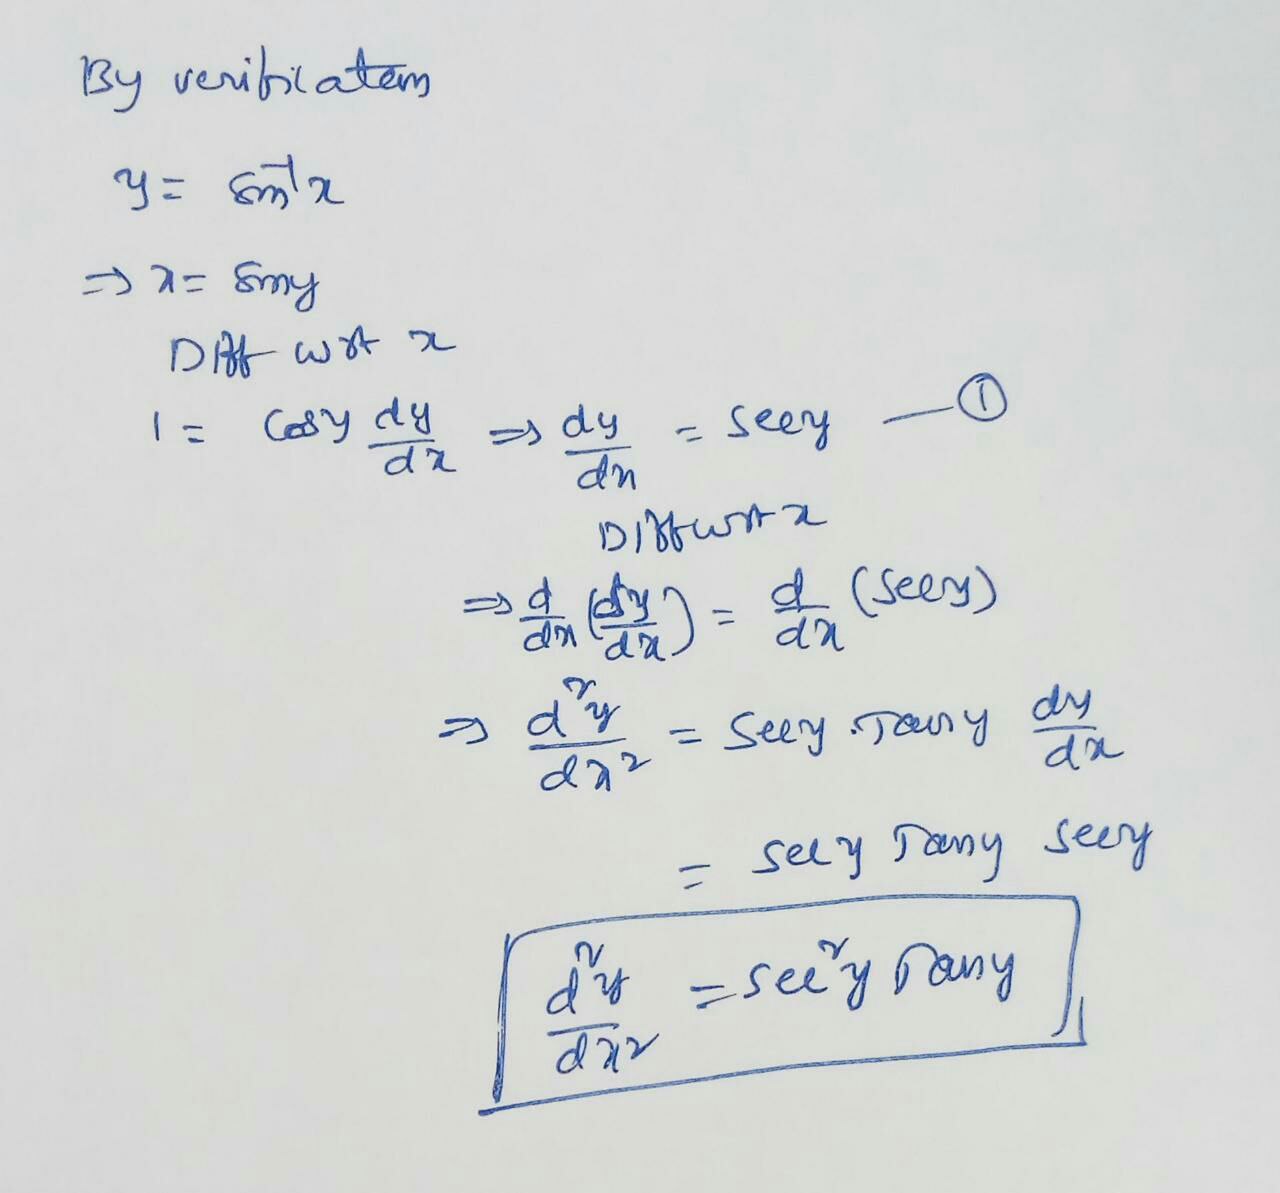 By verification
y = sin⁻¹x
⇒ x = siny
Diff wrt x
1 = Cosy dy/dx ⇒ dy/dx = secy — ①
Diff wrt x
⇒ d/dx (dy/dx) = d/dx (secy)
⇒ d²y/dx² = secy . Tany dy/dx
= secy Tany secy
d²y/dx² = sec²y Tany